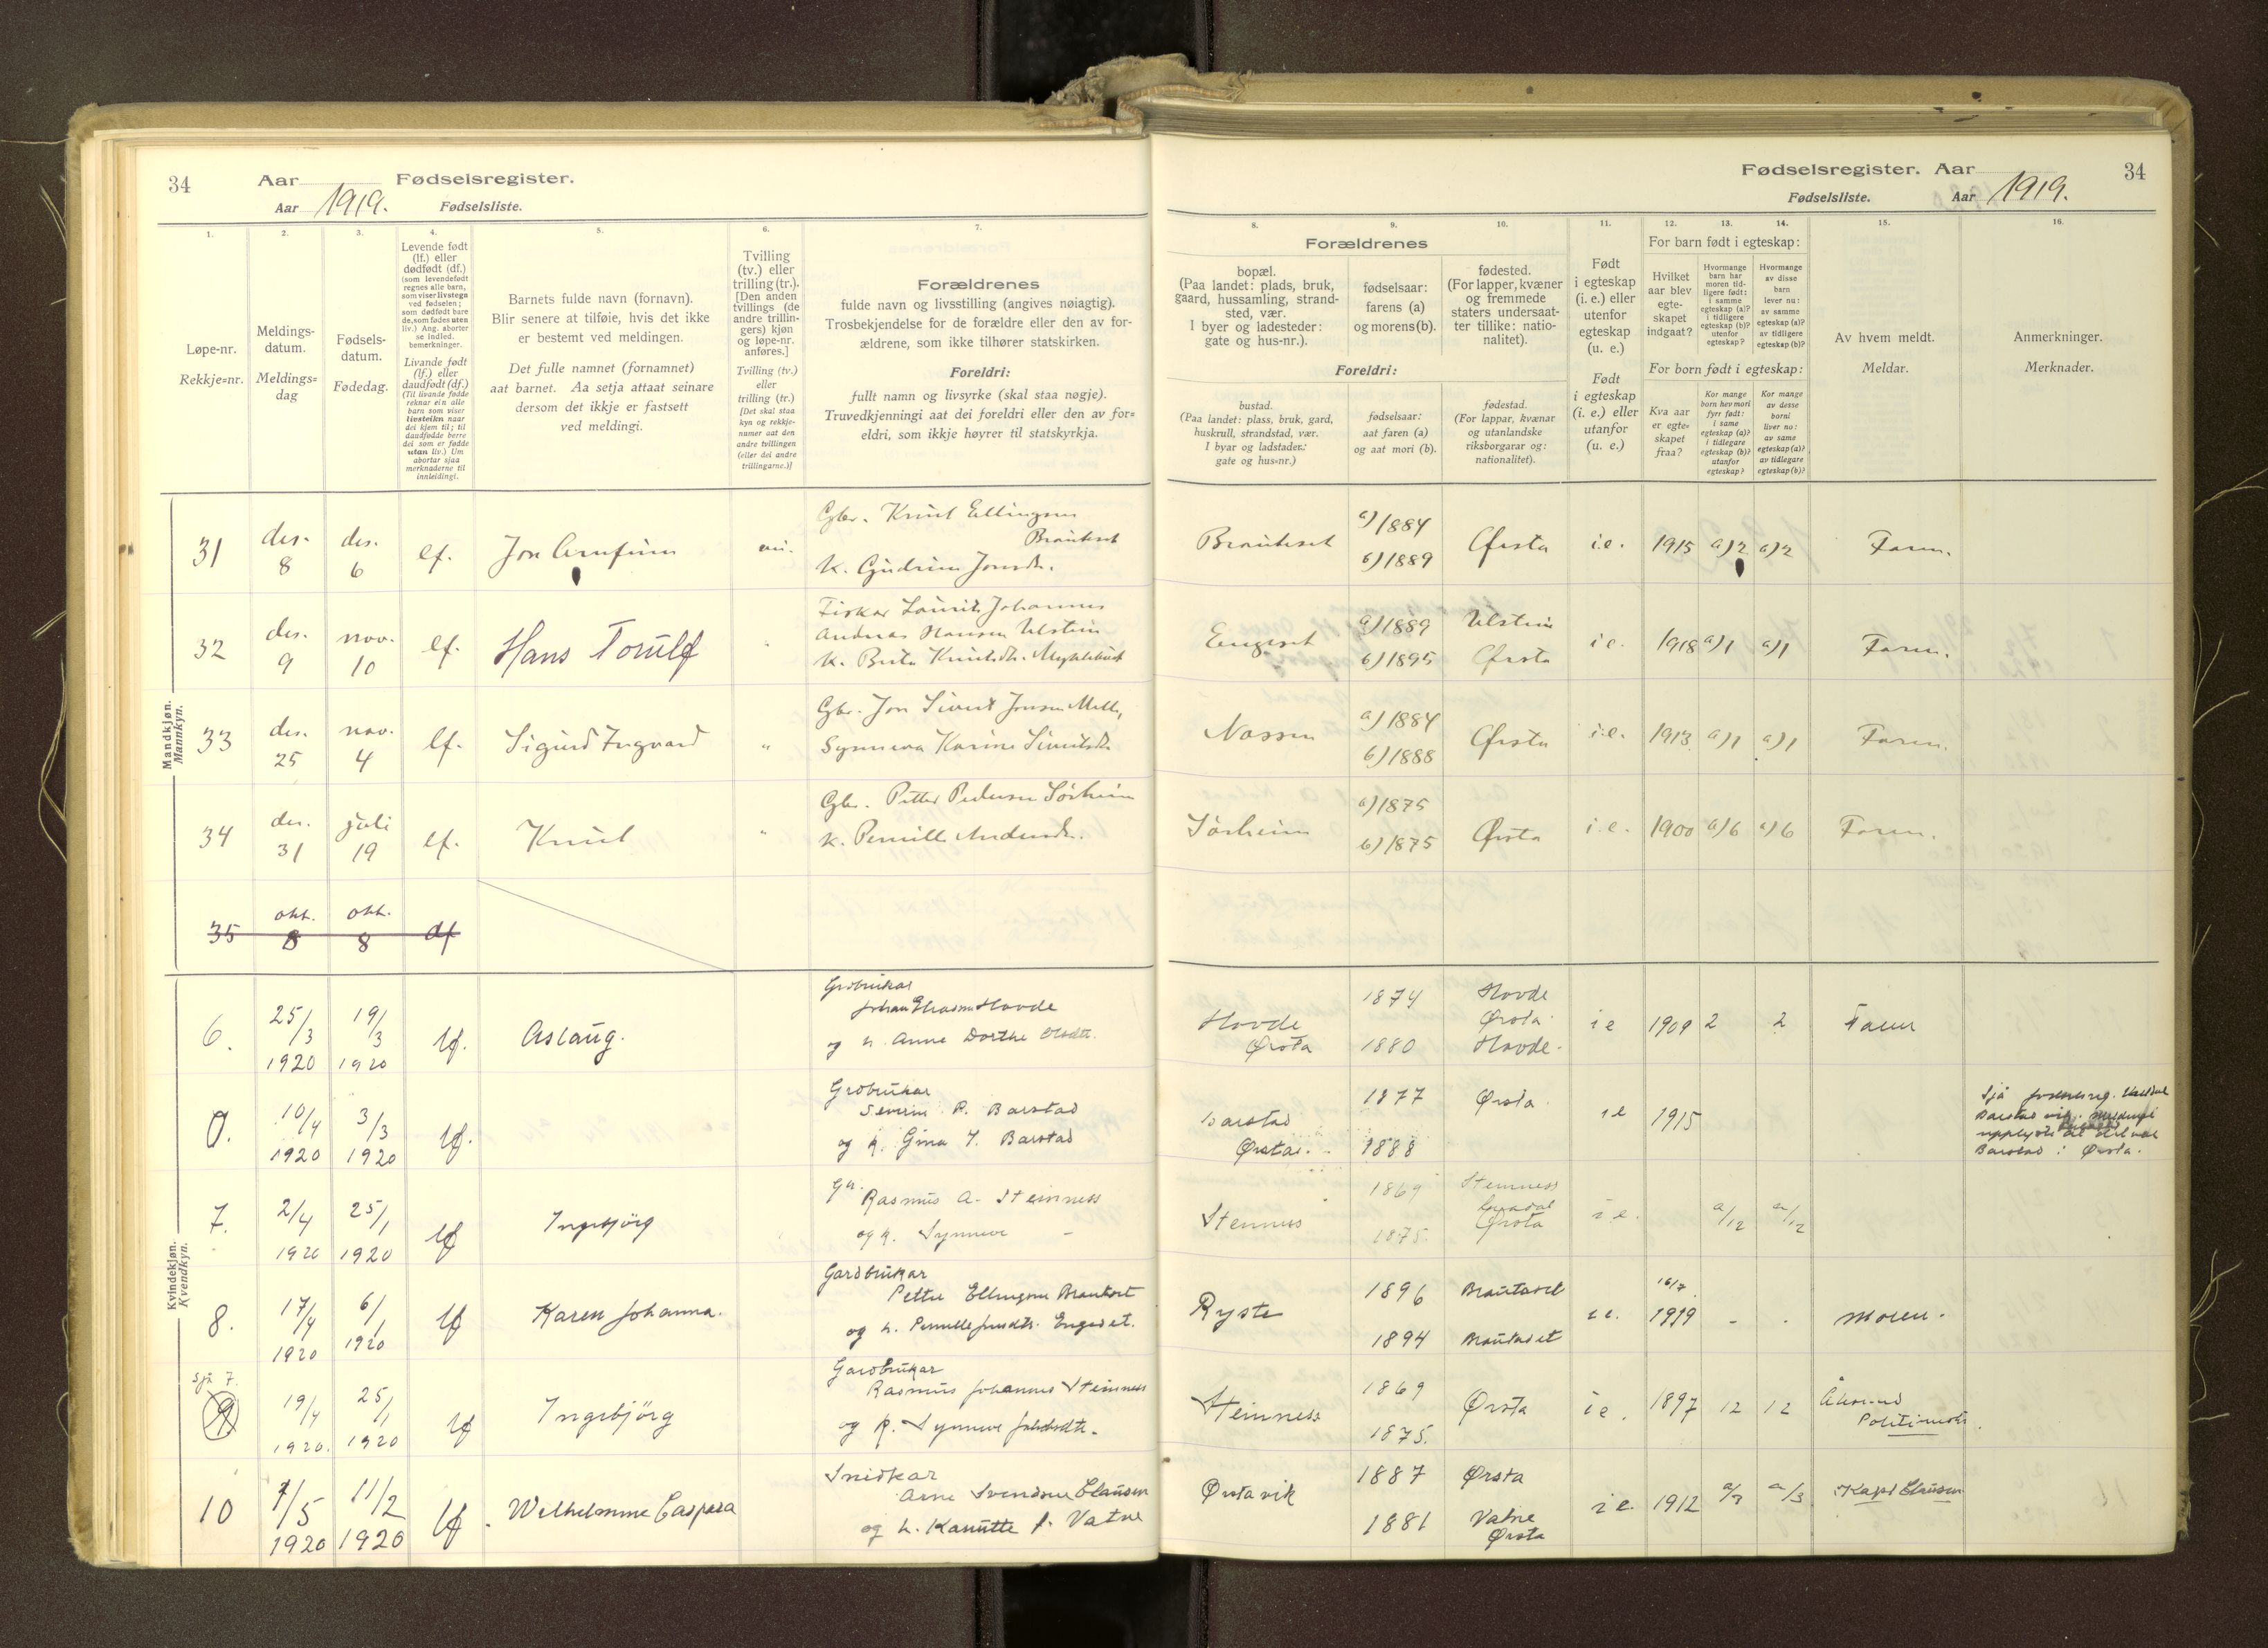 34 Aar Fødselsregister.
Aar 1919. Fødselsliste.
Fødselsregister. Aar 34
Fødselsliste. Aar 1919.
1. 2. 3. 4. 5. 6. 7.
Løpe-nr.
Rekkje=nr.
Meldings-
datum.
Meldings=
dag
Fødsels-
datum.
Fødedag.
Levende født
(lf.) eller
dødfødt (df.)
(som levendefødt
regnes alle barn,
som viser livstegn
ved fødselen;
som dødfødt bare
de, som fødes uten
liv.) Ang. aborter
se indled.
bemerkninger.
Livande født
(lf.) eller
daudfødt (df.)
(Til livande fødde
reknar ein alle
barn som viser
livsteikn naar
dei kjem til; til
daudfødde berre
dei som er fødde
utan liv.) Um
abortar sjaa
merknaderne til
innleidingi.
Barnets fulde navn (fornavn).
Blir senere at tilføie, hvis det ikke
er bestemt ved meldingen.
Det fulle namnet (fornamnet)
aat barnet. Aa setja attaat seinare
dersom det ikkje er fastsett
ved meldingi.
Tvilling
(tv.) eller
trilling (tr.).
[Den anden
tvillings (de
andre trillin-
gers) kjøn
og løpe-nr.
anføres.]
Tvilling (tv.)
eller
trilling (tr.)
[Det skal staa
kyn og rekkje-
numer aat den
andre tvillingen
(eller dei andre
trillingarne.)]
Forældrenes
fulde navn og livsstilling (angives nøiagtig).
Trosbekjendelse for de forældre eller den av for-
ældrene, som ikke tilhører statskirken.
Foreldri:
fullt namn og livsyrke (skal staa nøgje).
Truvedkjenningi aat dei foreldri eller den av for=
eldri, som ikkje høyrer til statskyrkja.
8. 9. 10. 11. 12. 13. 14. 15. 16.
Forældrenes
bopæl.
(Paa landet: plads, bruk,
gaard, hussamling, strand-
sted, vær.
I byer og ladesteder:
gate og hus-nr.).
fødselsaar:
farens (a)
og morens (b).
fødested.
(For lapper, kvæner
og fremmede
staters undersaat-
ter tillike: natio-
nalitet).
Foreldri:
bustad.
(Paa landet: plass, bruk, gard,
huskrull, strandstad, vær.
I byar og ladstader:
gate og hus=nr.)
fødselsaar:
aat faren (a)
og aat mori (b).
fødestad.
(For lappar, kvænar
og utanlandske
riksborgarar og:
nationalitet).
Født
i egteskap
(i. e.) eller
utenfor
egteskap
(u. e.)
Født
i egteskap
(i. e.) eller
utanfor
(u. e.)
For barn født i egteskap:
Hvilket
aar blev
egte-
skapet
indgaat?
Hvormange
barn har
moren tid-
ligere født:
i samme
egteskap (a)?
i tidligere
egteskap (b)?
utenfor
egteskap?
Hvormange
av disse
barn
lever nu:
av samme
egteskap (a)?
av tidligere
egteskap (b)?
For born født i egteskap:
Kva aar
er egte=
skapet
fraa?
Kor mange
born hev mori
fyrr født:
i same
egteskap (a)?
i tidlegare
egteskap (b)?
utanfor
egteskap?
Kor mange
av desse
borni
liver no:
av same
egteskap (a)?
av tidlegare
egteskap (b)?
Av hvem meldt.
Meldar.
Anmerkninger.
Merknader.
Mandkjøn.
Mannkyn.
31 des. 8 des. 6 lf. Jon Arnfinn
Gbr. Knut Ellingsen
Brauteset
K. Gudrun Jonsdt.
Brauteset a) 1884 b) 1889 Ørsta i.e. 1915 a) 2 a) 2 Faren.
32 des. 9 nov. 10 lf. Hans Torulf "
Fiskar Laurits Johannes
Andreas Hansen Ulstein
K. Berte Knutsdt. Myklebust
Engeset a) 1889 b) 1895 Ulstein Ørsta i e. 1918 a) 1 a) 1 Faren.
33 des. 25 nov. 4 lf. Sigurd Ingvard "
Gbr. Jon Sivert Jonsen Melle,
Synneva Karine Sivertsdt.
Nossen a) 1884 b) 1888 Ørsta i.e. 1913 a) 1 a) 1 Faren.
34 des. 31 juli 19 lf. Knut "
Gbr. Petter Pedersen Sørheim
K. Pernille Andersdt.
Sørheim a) 1875 b) 1875 Ørsta i.e. 1900 a) 6 a) 6 Faren.
35 okt. 8 okt. 8 df
Kvindekjøn.
Kvendkyn.
6. 25/3 1920 19/3 1920 lf. Aslaug.
Grdbrukar
Johan Elias Hovde
og k. Anne Dorthe
Hovde Ørsta 1874 1880 Hovde Ørsta. Hovde. i e 1909 2 2 Faren
0. 10/4 1920 3/3 1920 lf.
Grdbrukar
Severin P. Barstad
og k. Gina Y. Barstad
Barstad Ørsta. 1877 1888 Ørsta i e 1915
Sjå
Barstad
upplyste at det var
Barstad i Ørsta.
7. 2/4 1920 25/1 1920 lf Ingebjörg
Rasmus A. Steinness
og k. Synneve -
Steinnes 1869 1875. Steinness Ørsta i e. a/12 a/12
8. 17/4 1920 6/1 1920 lf Karen Johanna.
Gardbrukar
Petter Ellingsen Brautset
og k. Pernille Engeset.
Ryste 1896 1894 Brautaset Brautaset i e. 16/7. 1919 - - Moren.
sjå 7.
9 19/4 1920. 25/1 1920 lf Ingebjörg
Gardbrukar
Rasmus Johannes Steinness
og k. Synneve
Steinness 1869 1875. Ørsta i e. 1897 12 12 Ålesund
10 7/5 1920 11/2 1920 lf. Wilhelmine Caspara
Snidkar
Arne Svendsen Clausen
og k. Kanutte J. Vatne
Ørstavik 1887 1881 Ørsta Vatne Ørsta i e. 1912 a/3 a/3 Kapt Clausen